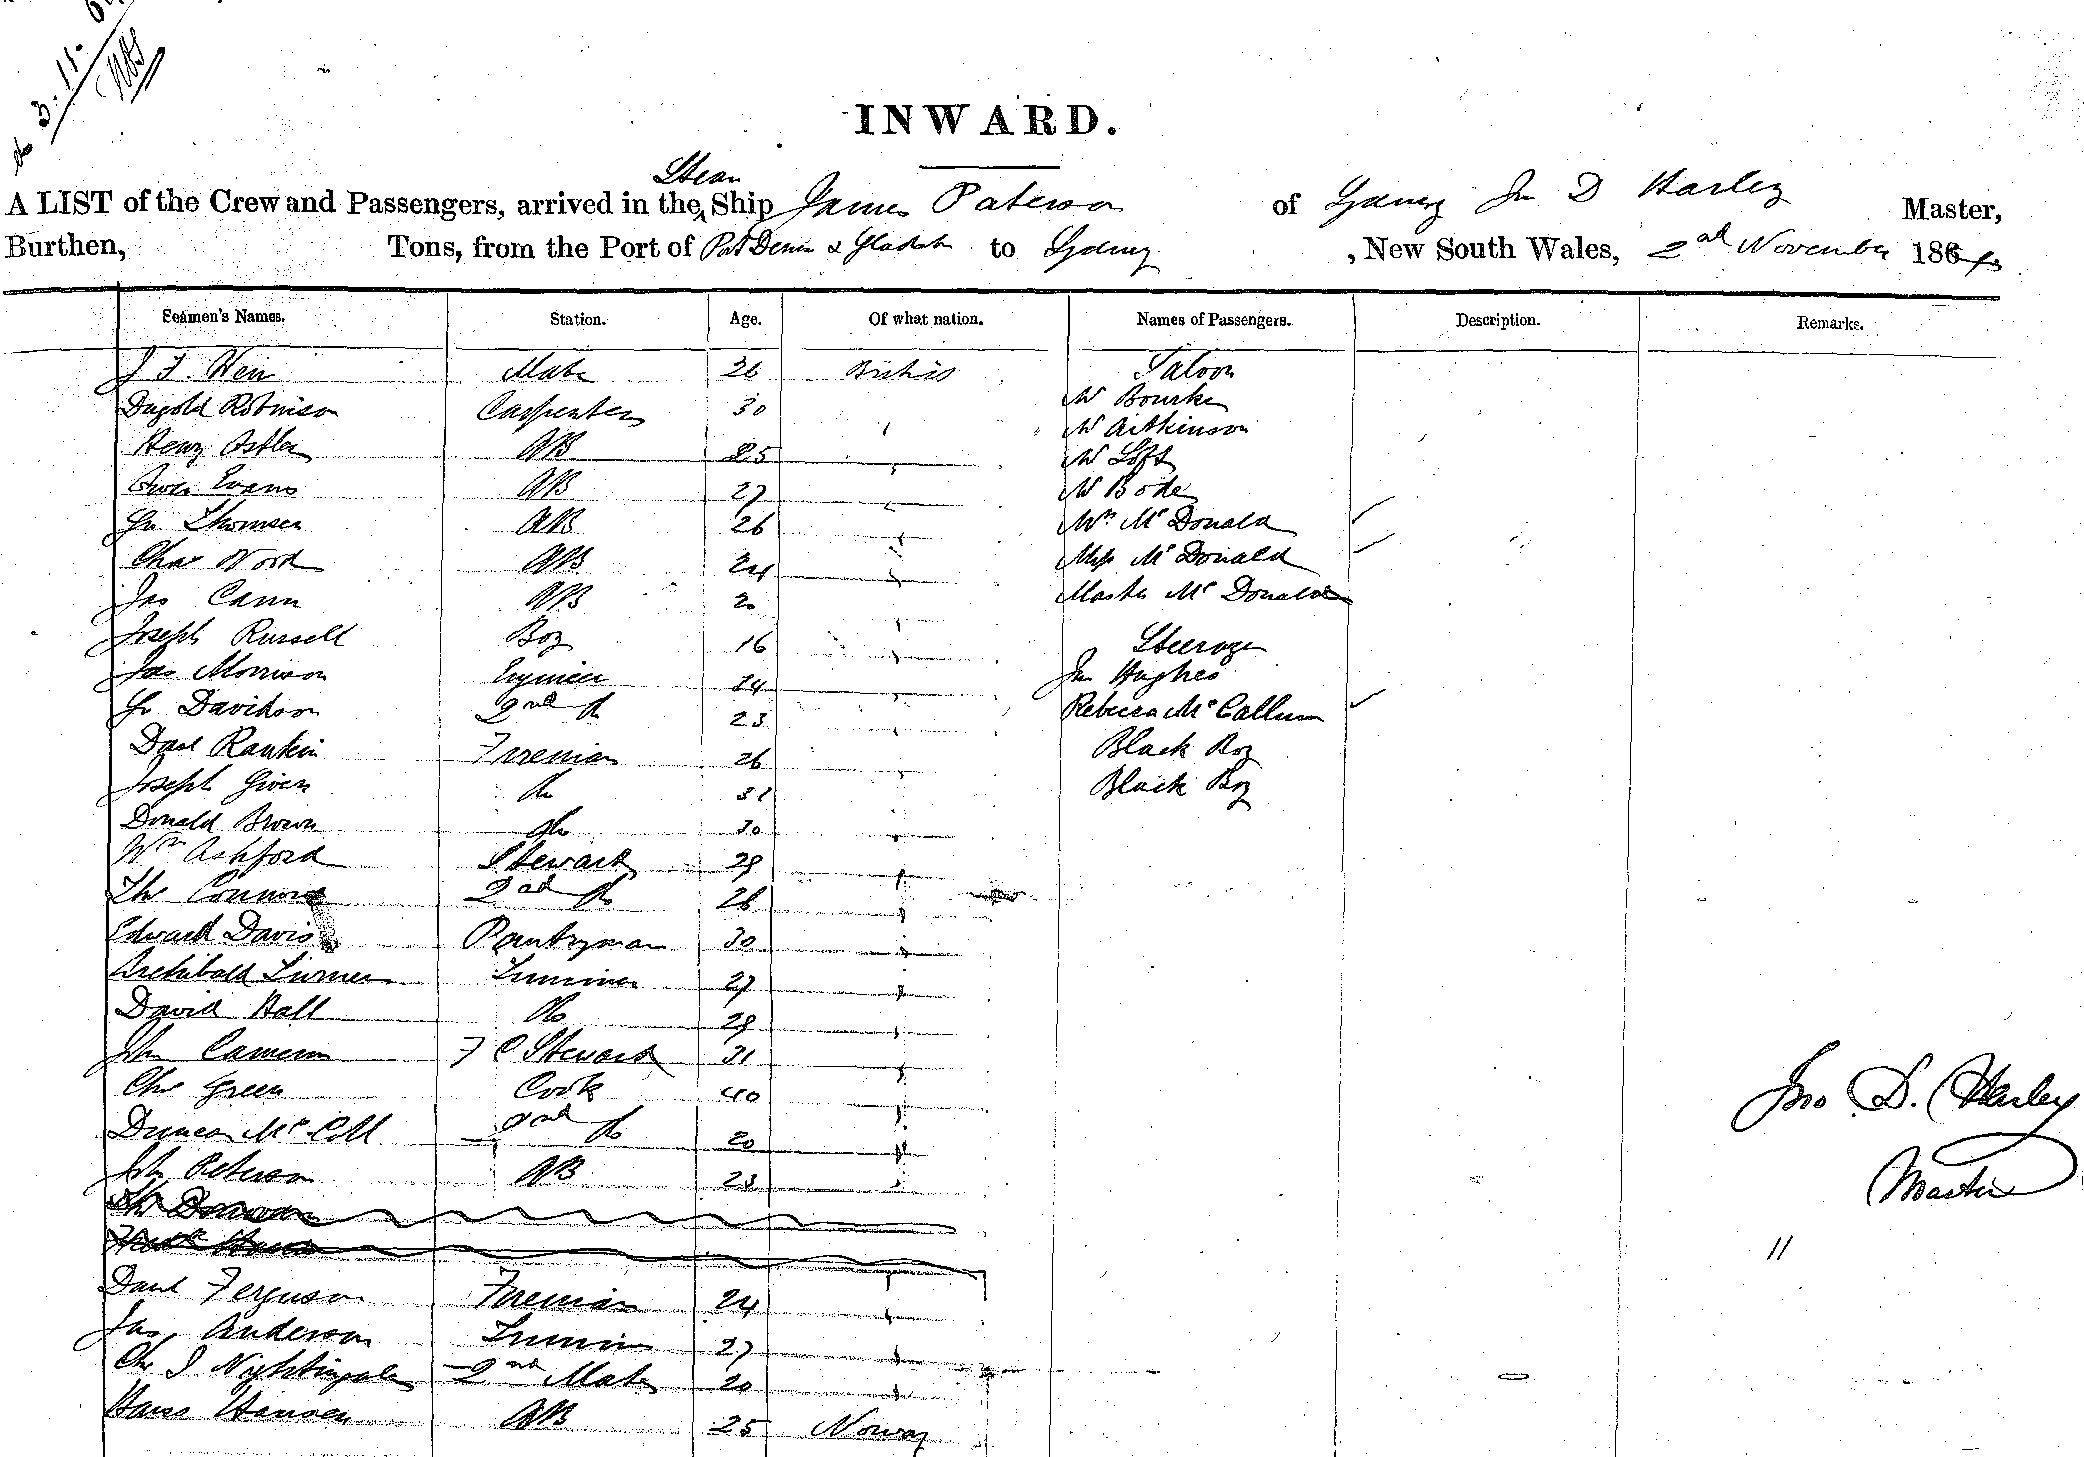 3.11.
INWARD.
Steam
A LIST of the Crew and Passengers, arrived in the Ship James Paterson of Sydney Jn D Harley Master,
Burthen, Tons, from the Port of Port Denison & Gladstone to Sydney , New South Wales, 2nd November 1864
Seamen's Names. Station. Age. Of what nation. Names of Passengers. Description. Remarks.
J F Weir Mate 26 British Saloon
Dugold Robinson Carpenter 30 " Mr Bourke
Mr Aitkinson
Henry Astler AB 25 " Mr Loft
Owen Evans AB 27 " Mr Bode
Jn Thomsen AB 26 " Mrs McDonald
Chas Wood AB 24 " Miss McDonald
Jas Cann AB 20 " Master McDonald
Joseph Russell Boy 16 " Steerage
Jas Morrison Engineer 34 " Jn Hughes
Jn Davidson 2nd Do 23 " Rebecca McCallum
Danl Rankin Fireman 26 " Black Boy
Joseph Given Do 31 " Black Boy
Donald Brown Do 30 "
Wm Ashford Steward 29 "
Thos Connors 2nd Do 26 "
Edward Davis Pantryman 30 "
Archibald Turner Trimmer 27 "
David Hall Do 29 "
John Cameron F C Steward 31 "
Chas Green Cook 40 "
Duncan McColl 2nd Do 20 "
John Peterson AB 23 "
Jno D. Harley
Master
Danl Ferguson Fireman 24 "
Jas Anderson Trimmer 27 "
Chs J Nightingale 2nd Mate 20 "
Hans Hansen AB 25 Norway